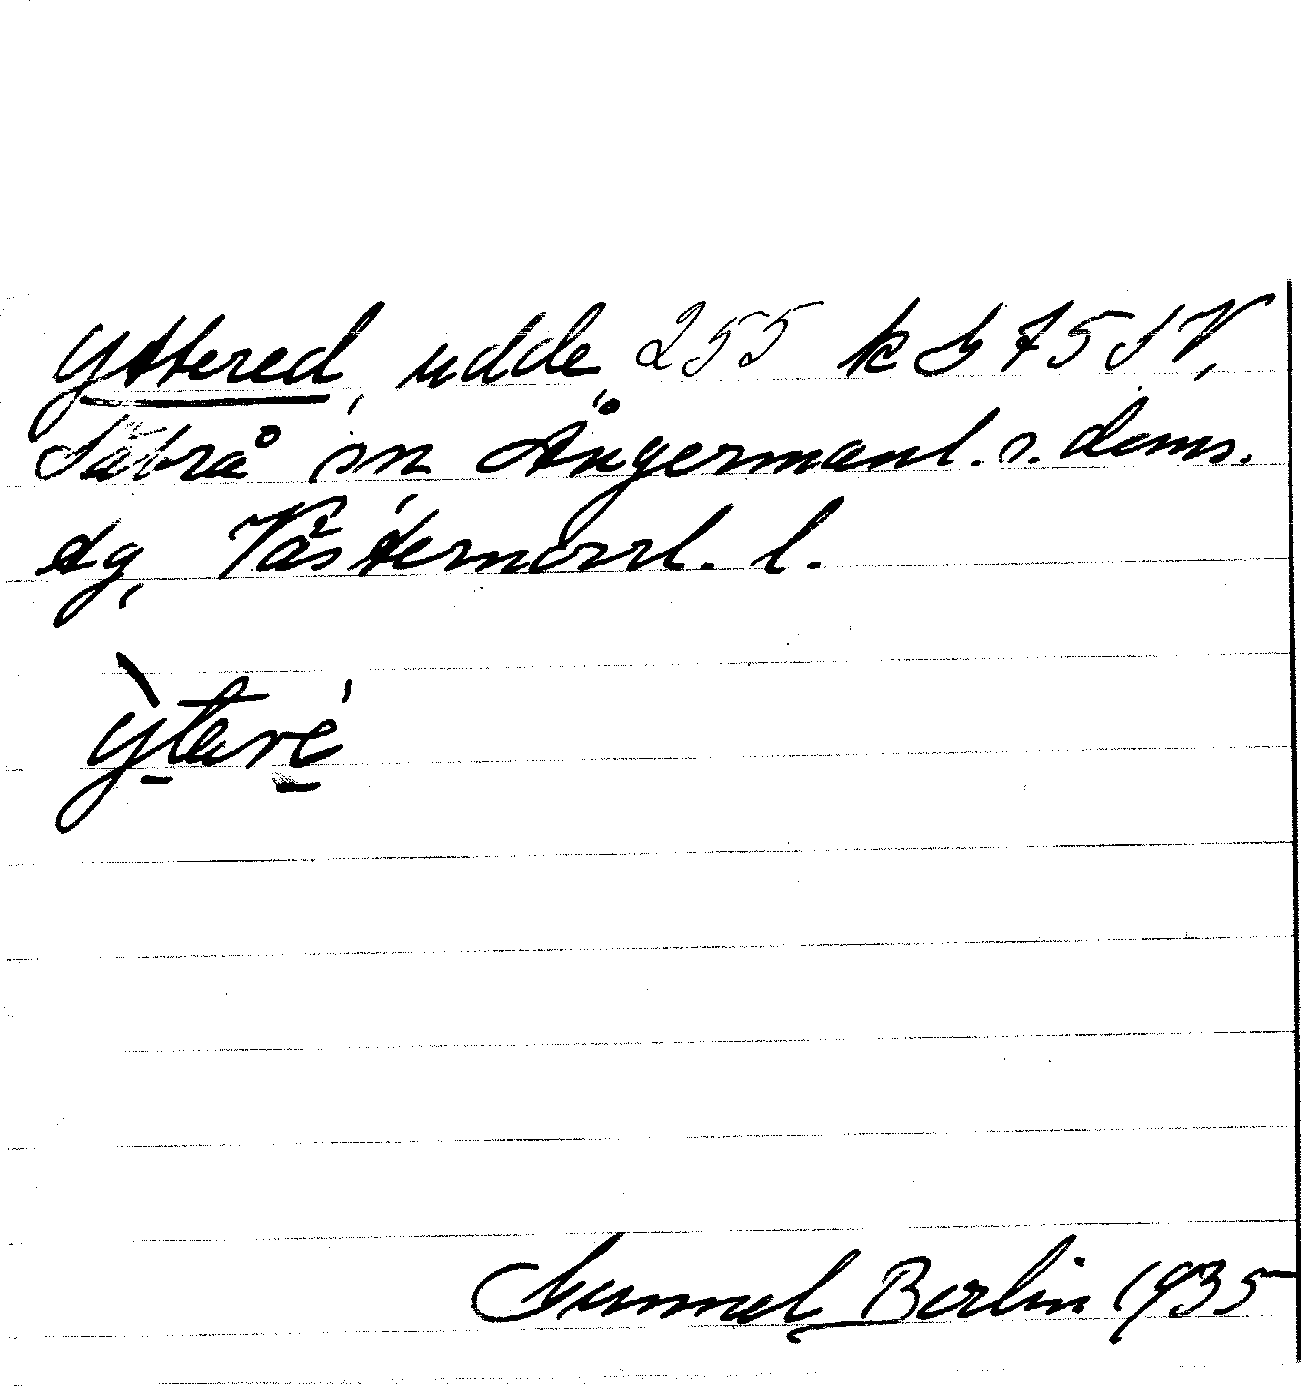 Yttered, udde, 255 k bl 75 SV,
Säbrå sn Ångermanl. s. doms.
dg, Västernorrl. l.
ỳteré
Gunnel Berlin 1935